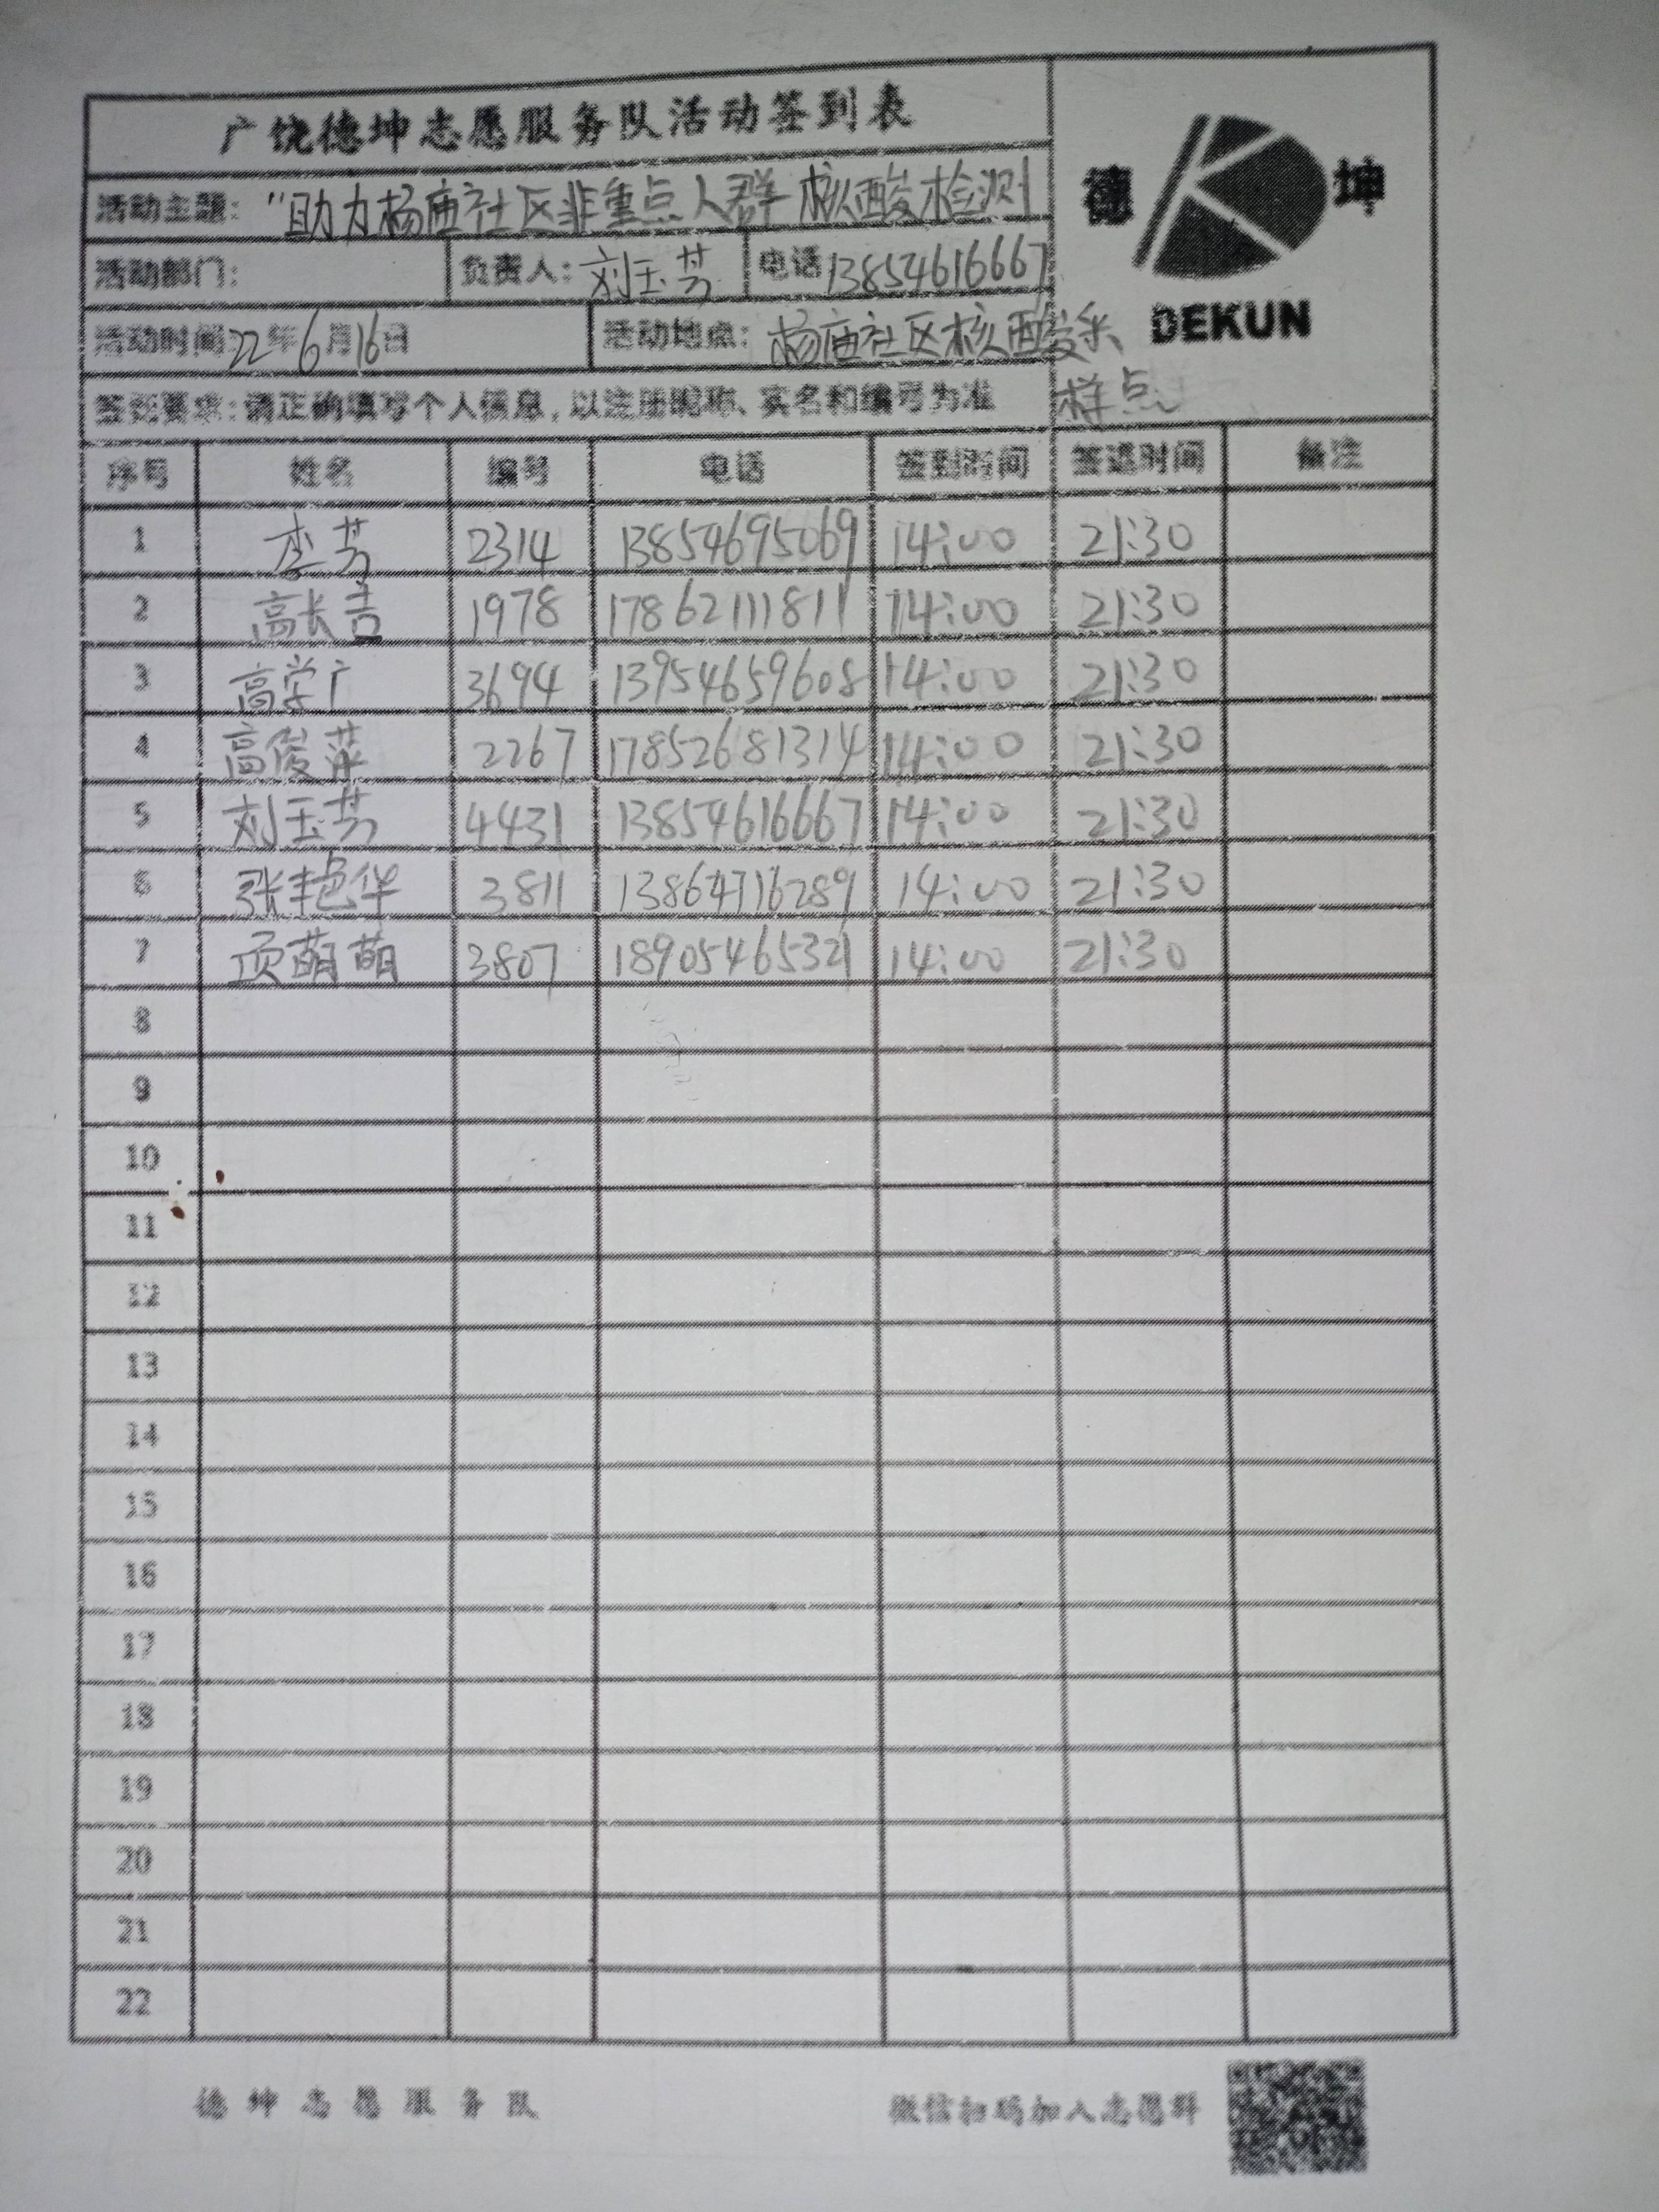 广饶德坤志愿服务队活动签到表
德 坤
DEKUN
活动主题: "助力杨庙社区非重点人群核酸检测
活动部门: 负责人: 刘玉芳 电话 13854616667
活动时间: 22年6月16日 活动地点: 杨庙社区核酸采
样点
签到要求: 请正确填写个人信息, 以注册昵称、实名和编号为准
序号 姓名 编号 电话 签到时间 签退时间 备注
1 李芳 2314 13854695069 14:00 21:30
2 高长吉 1978 17862111811 14:00 21:30
3 高学广 3694 13954659608 14:00 21:30
4 高俊萍 2267 17852681314 14:00 21:30
5 刘玉芳 4431 13854616667 14:00 21:30
6 张艳华 3811 13864716289 14:00 21:30
7 项萌萌 3807 18905465321 14:00 21:30
8
9
10
11
12
13
14
15
16
17
18
19
20
21
22
德坤志愿服务队 微信扫码加入志愿群